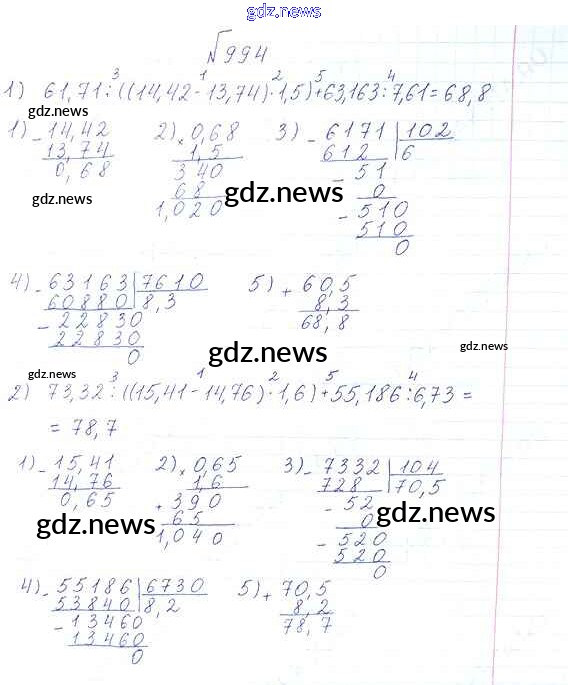 gdz.news
№994
1) 61,71:((14,42-13,74)·1,5)+63,163:7,61=68,8
3 1 2 5 4
gdz.news gdz.news
1) - 14,42 2) × 0,68 3) - 6171 | 102
13,74 1,5 612 6
0,68 340 - 51
68 0
1,020 - 510
510
0
gdz.news gdz.news gdz.news
4) - 63163 | 7610 5) + 60,5
60880 8,3 8,3
- 22830 68,8
22830
0
gdz.news
gdz.news gdz.news
2) 73,32:((15,41-14,76)·1,6)+55,186:6,73=
3 1 2 5 4
= 78,7
1) - 15,41 2) × 0,65 3) - 7332 | 104
14,76 1,6 728 70,5
0,65 + 390 - 52
65 0
1,040 - 520
520
0
gdz.news gdz.news gdz.news
4) - 55186 | 6730 5) + 70,5
53840 8,2 8,2
- 13460 78,7
13460
0
gdz.news gdz.news
gdz.news